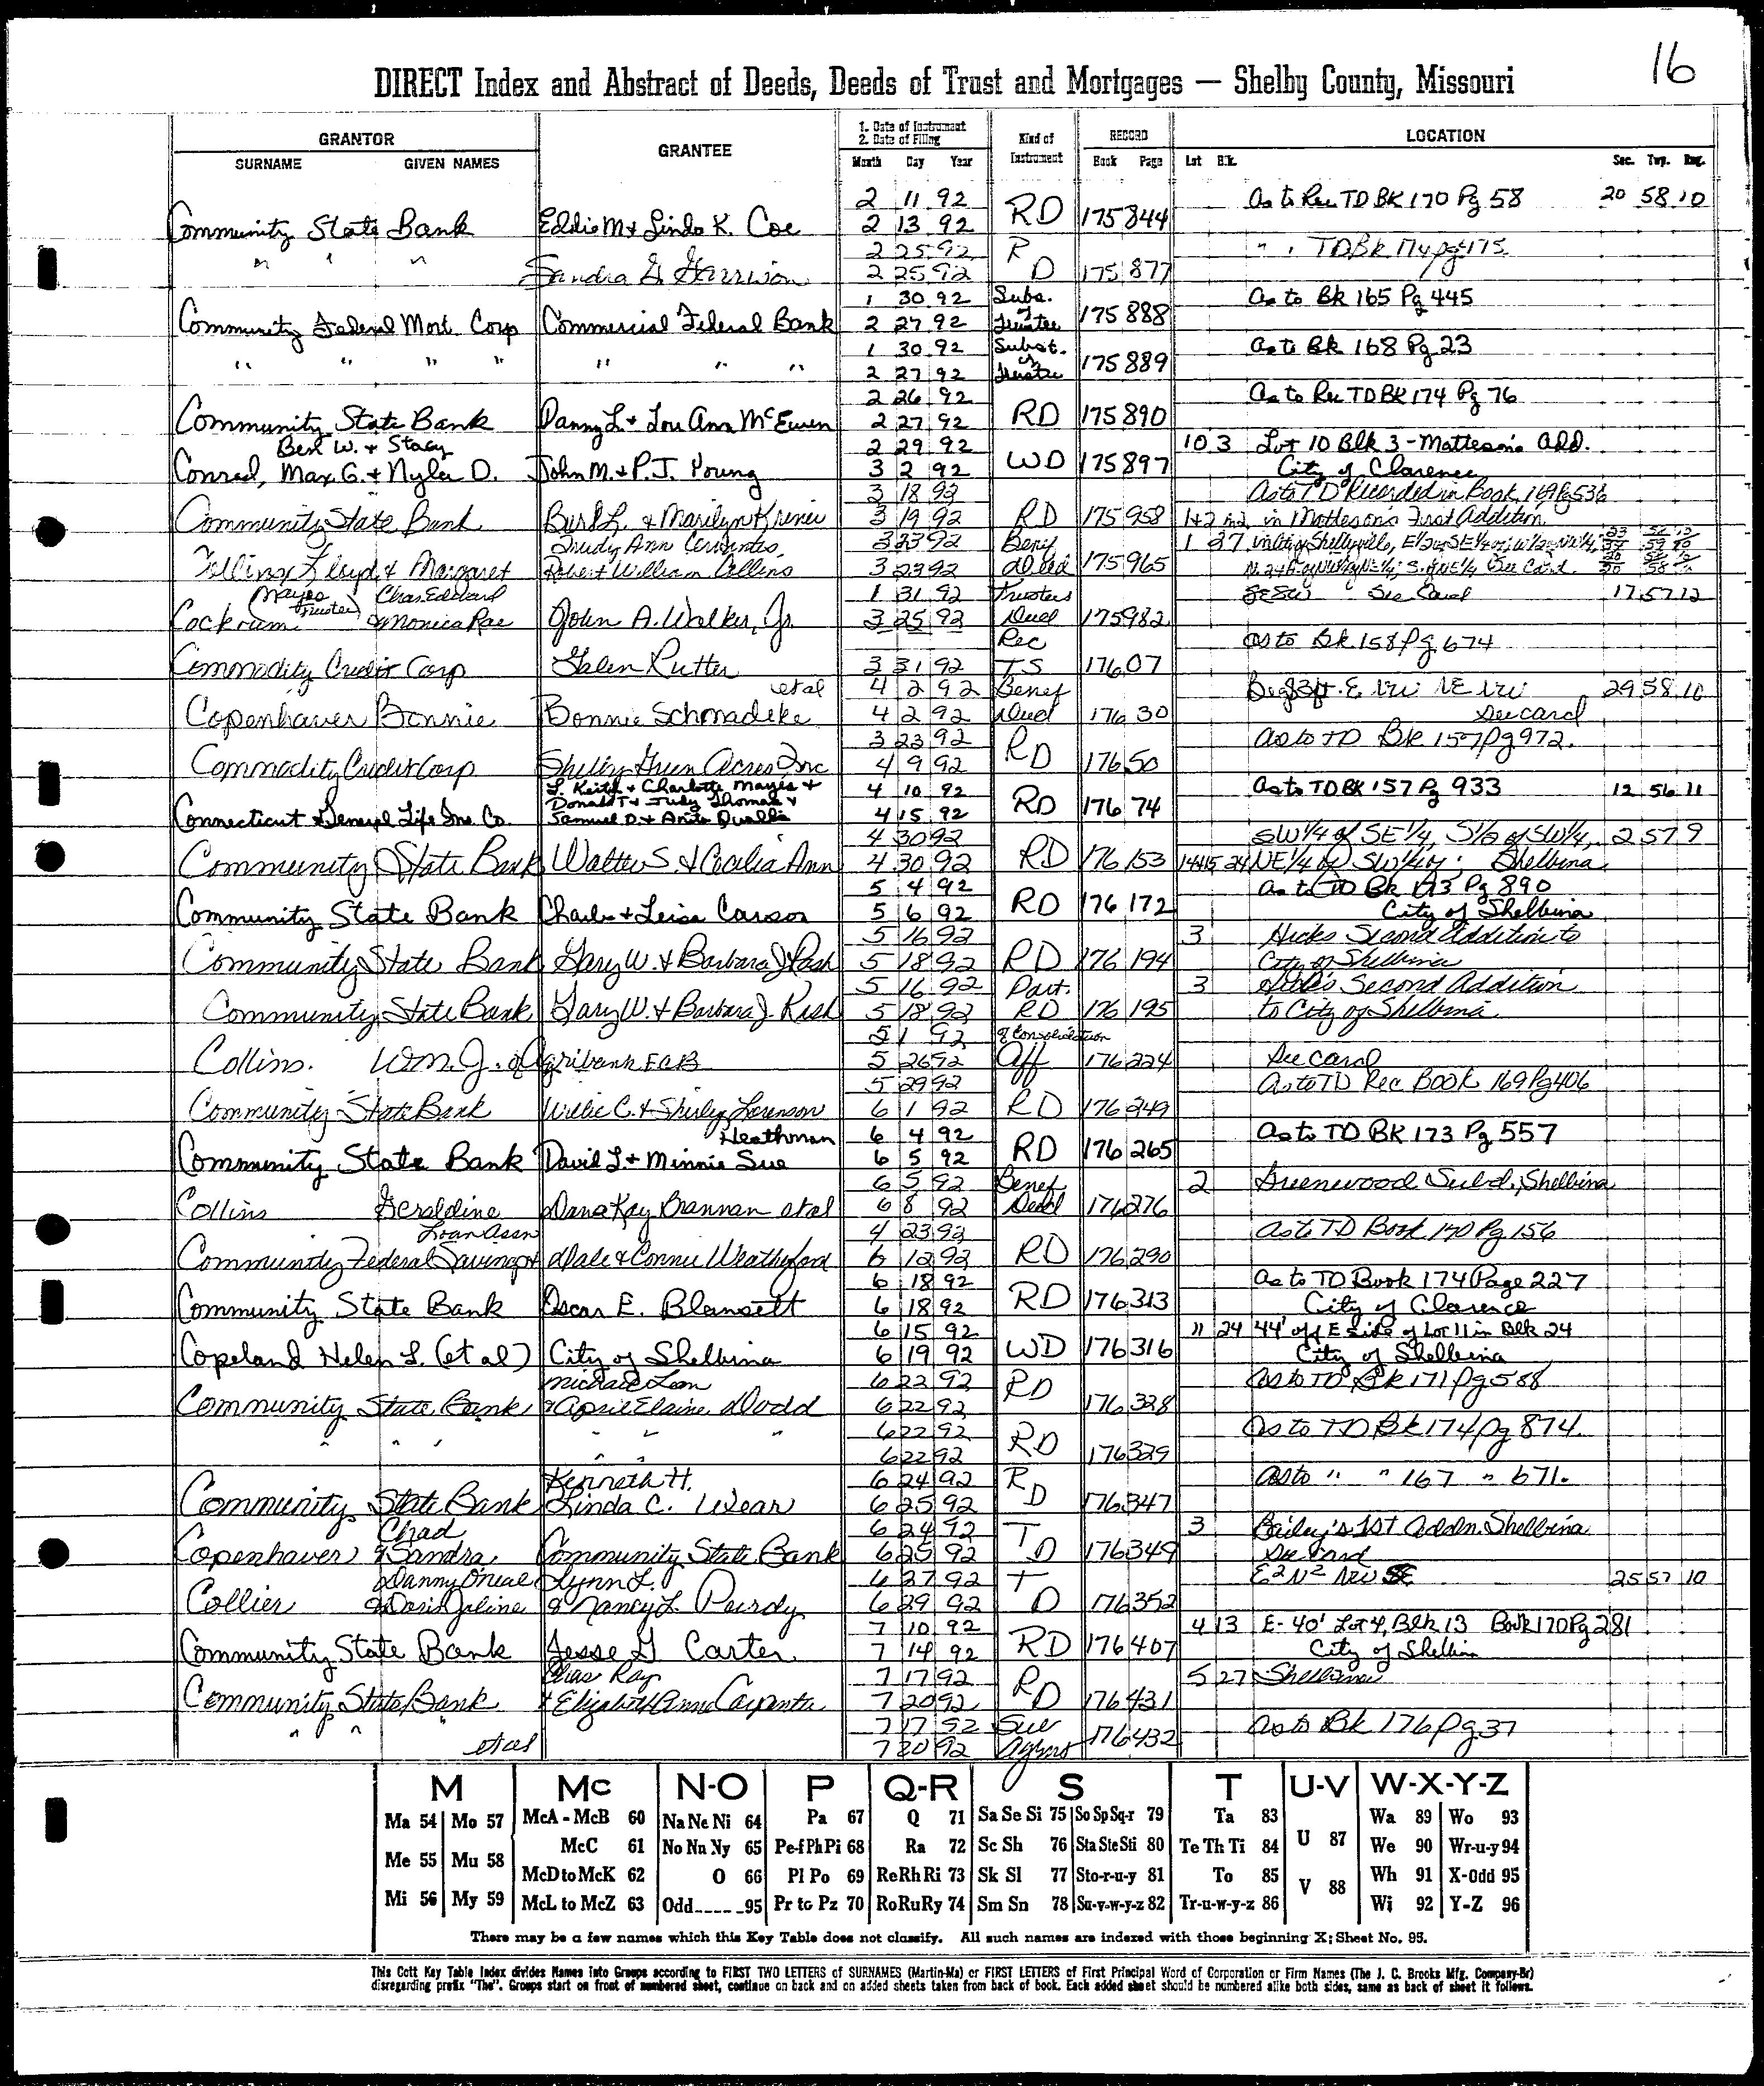 16
DIRECT Index and Abstract of Deeds, Deeds of Trust and Mortgages — Shelby County, Missouri
GRANTOR GRANTEE 1. Date of Instrument 2. Date of Filing Kind of Instrument RECORD LOCATION
SURNAME GIVEN NAMES Month Day Year Book Page Lot Blk. Sec. Twp. Rng.
2 11 92 As to Rec TD BK 170 Pg 58 20 58 10
Community State Bank Eddie M & Linda K. Coe 2 13 92 RD 175 844
2 25 92 R " " TD Bk 174 pg 475
" " " Sandra G 2 25 92 D 175 877
1 30 92 Subs. As to Bk 165 Pg 445
Community Federal Mort. Corp Commercial Federal Bank 2 27 92 of Trustee 175 888
1 30 92 Subst. As to Bk 168 Pg 23
" " " " " " " 2 27 92 of Trustee 175 889
2 26 92 As to Rec TD BK 174 Pg 76
Community State Bank Danny L & Lou Ann McEwen 2 27 92 RD 175 890
Bert W. & Stacy 2 29 92 10 3 Lot 10 Blk 3 - Matteson's Add.
Conrad, Max G. & Nyla D. John M. & P.J. Young 3 2 92 WD 175 897 City of Clarence
3 18 92 As to TD Recorded in Book 169 Pg 536
Community State Bank Burl L. & Marilyn 3 19 92 RD 175 958 1+2 in Matteson's First Addition
Trudy Ann Cervantes, 3 23 92 Benf 1 27
Floyd & Margaret Robert William Collins 3 23 92 Deed 175 965 See Card
Mayes Trustee Chas. Edward 1 31 92 Trustees SESW See Card 17 57 12
Cockrum & Monica Rae John A. Walker, Jr. 3 25 92 Deed 175 982
Rec As to Bk 158 Pg 674
Commodity Credit Corp Galen Rutter 3 31 92 T.S 176 07
et al 4 2 92 Benef 29 58 10
Copenhaver Bonnie Bonnie Schmadeke 4 2 92 Deed 176 30 See card
3 23 92 As to TD Bk 157 Pg 972.
Commodity Credit Corp Shelby Green Acres Inc 4 9 92 RD 176 50
L. Keith & Charlotte Mayes & 4 10 92 As to TD BK 157 Pg 933 12 56 11
Donald T & Judy Thomas &
Connecticut General Life Ins. Co. Samuel D. & Anita Qualls 4 15 92 RD 176 74
4 30 92 SW 1/4 of SE 1/4, S 1/2 of SW 1/4, 2 57 9
Community State Bank Walter S. & Cecilia Ann 4 30 92 RD 176 153 14&15 24 NE 1/4 of SW 1/4 of Shelbina
5 4 92 As to TD Bk 173 Pg 890
Community State Bank Charles & Leisa Carson 5 6 92 RD 176 172 City of Shelbina
5 16 92 3 Hicks Second Addition to
Community State Bank Gary W. & Barbara J. Rash 5 18 92 RD 176 194 City of Shelbina
5 16 92 Part. 3 Second Addition
Community State Bank Gary W. & Barbara J. Rash 5 18 92 RD 176 195 to City of Shelbina
5 1 92 of Consolidation
Collins. Wm. J. of Agribank FCB 5 26 92 Aff 176 224 See Card
5 29 92 As to TD Rec Book 169 Pg 406
Community State Bank Willie C. & Shirley Lorenson 6 1 92 RD 176 249
Heathman 6 4 92 As to TD BK 173 Pg 557
Community State Bank David L & Minnie Sue 6 5 92 RD 176 265
6 5 92 Benef 2 Greenwood Subd., Shelbina
Collins Geraldine Dana Kay Brannan et al 6 8 92 Deed 176 276
Loan Assn 4 23 92 As to TD Book 170 Pg 156
Community Federal Savings & Dale & Connie Weatherford 6 12 92 RD 176 290
6 18 92 As to TD Book 174 Page 227
Community State Bank Oscar E. Blansett 6 18 92 RD 176 313 City of Clarence
6 15 92 11 24 44' off E side of Lot 11 in Blk 24
Copeland Helen L. (et al) City of Shelbina 6 19 92 WD 176 316 City of Shelbina
Michael Leon 6 22 92 As to TD Bk 171 Pg 588
Community State Bank & April Elaine Dodd 6 22 92 RD 176 328
" " " 6 22 92 As to TD Bk 174 Pg 874.
" " " " " 6 22 92 RD 176 329
Kenneth H. 6 24 92 R As to " " 167 " 671.
Community State Bank Linda C. Wear 6 25 92 D 176 347
Chad 6 24 92 T 3 Bailey's 1st Addn. Shelbina
Copenhaver & Sandra Community State Bank 6 25 92 D 176 349 See Card
Danny O'neal Lynn L. 6 27 92 T E2 N2 NW SE 25 57 10
Collier & Doris Joline & Nancy L. Purdy 6 29 92 D 176 352
7 10 92 4 13 E-40' Lot 4, Blk 13 Book 170 Pg 281
Community State Bank Jesse G Carter 7 14 92 RD 176 407 City of Shelbina
Chas Ray 7 17 92 R 5 27 Shelbina
Community State Bank & Elizabeth Anne Carpenter 7 20 92 D 176 431
" " " 7 17 92 As to Bk 176 Pg 37
et al 7 20 92 176 432
M Mc N-O P Q-R S T U-V W-X-Y-Z
Ma 54 Mo 57 McA - McB 60 Na Ne Ni 64 Pa 67 Q 71 Sa Se Si 75 So Sp Sq-r 79 Ta 83 U 87 Wa 89 Wo 93
Me 55 Mu 58 McC 61 No Nu Ny 65 Pe-f Ph Pi 68 Ra 72 Sc Sh 76 Sta Ste Sti 80 Te Th Ti 84 We 90 Wr-u-y 94
McD to McK 62 O 66 Pl Po 69 Re Rh Ri 73 Sk Sl 77 Sto-r-u-y 81 To 85 V 88 Wh 91 X-Odd 95
Mi 56 My 59 McL to McZ 63 Odd 95 Pr to Pz 70 Ro Ru Ry 74 Sm Sn 78 Su-v-w-y-z 82 Tr-u-w-y-z 86 Wi 92 Y-Z 96
There may be a few names which this Key Table does not classify. All such names are indexed with those beginning X; Sheet No. 95.
This Cott Key Table Index divides Names into Groups according to FIRST TWO LETTERS of SURNAMES (Martin-Ma) or FIRST LETTERS of First Principal Word of Corporation or Firm Names (The J. C. Brooks Mfg. Company-Br)
disregarding prefix "The". Groups start on front of numbered sheet, continue on back and on added sheets taken from back of book. Each added sheet should be numbered alike both sides, same as back of sheet it follows.